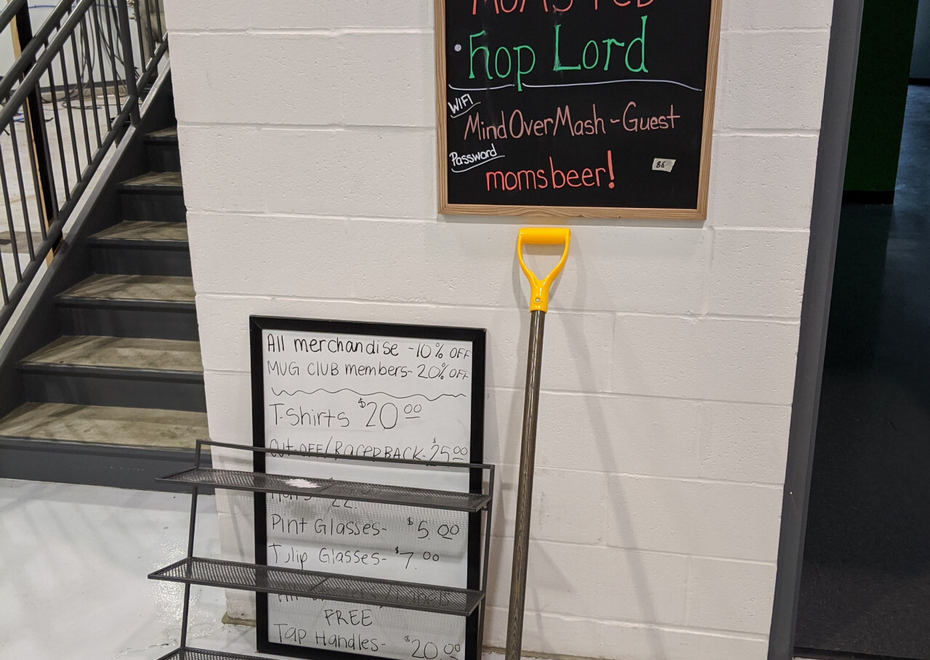 MOMS RED
• Hop Lord
WIFI
MindOverMash ~ Guest
Password
momsbeer!
86
All merchandise -10% OFF
MUG CLUB members- 20% OFF
T-Shirts $20.00
Cut-OFF/RACERBACK- $25.00
Pint Glasses- $5.00
Tulip Glasses- $7.00
FREE
Tap Handles- $20.00